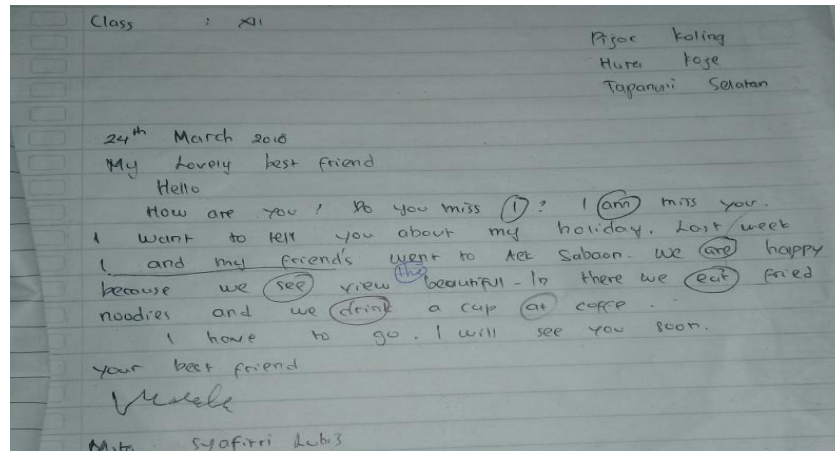 Class : XII
Pijor Koling
Huta Koje
Tapanuli Selatan
24th March 2018
My Lovely best friend
Hello
How are you? Do you miss I? I am miss you.
I want to tell you about my holiday. Last week
I and my friend's went to Aek Sabaon. We are happy
because we see view the beautiful. In there we eat fried
noodles and we drink a cup at coffe.
I have to go. I will see you soon.
your best friend
Syafitri Lubis